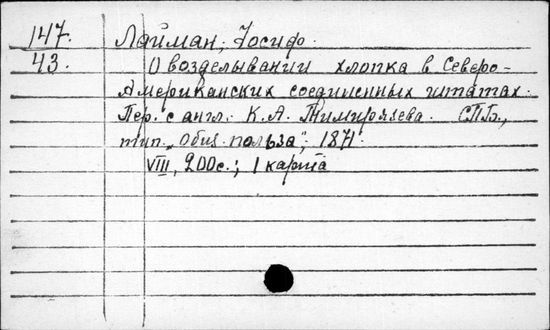 147. Лайман, Иосиф.
43. О возделывании хлопка в Северо-
Американских соединенных штатах.
Пер. с англ. К.А. Тимирязева. СПБ.,
тип. „Общ. польза", 1871.
VIII, 200с.; 1 карта